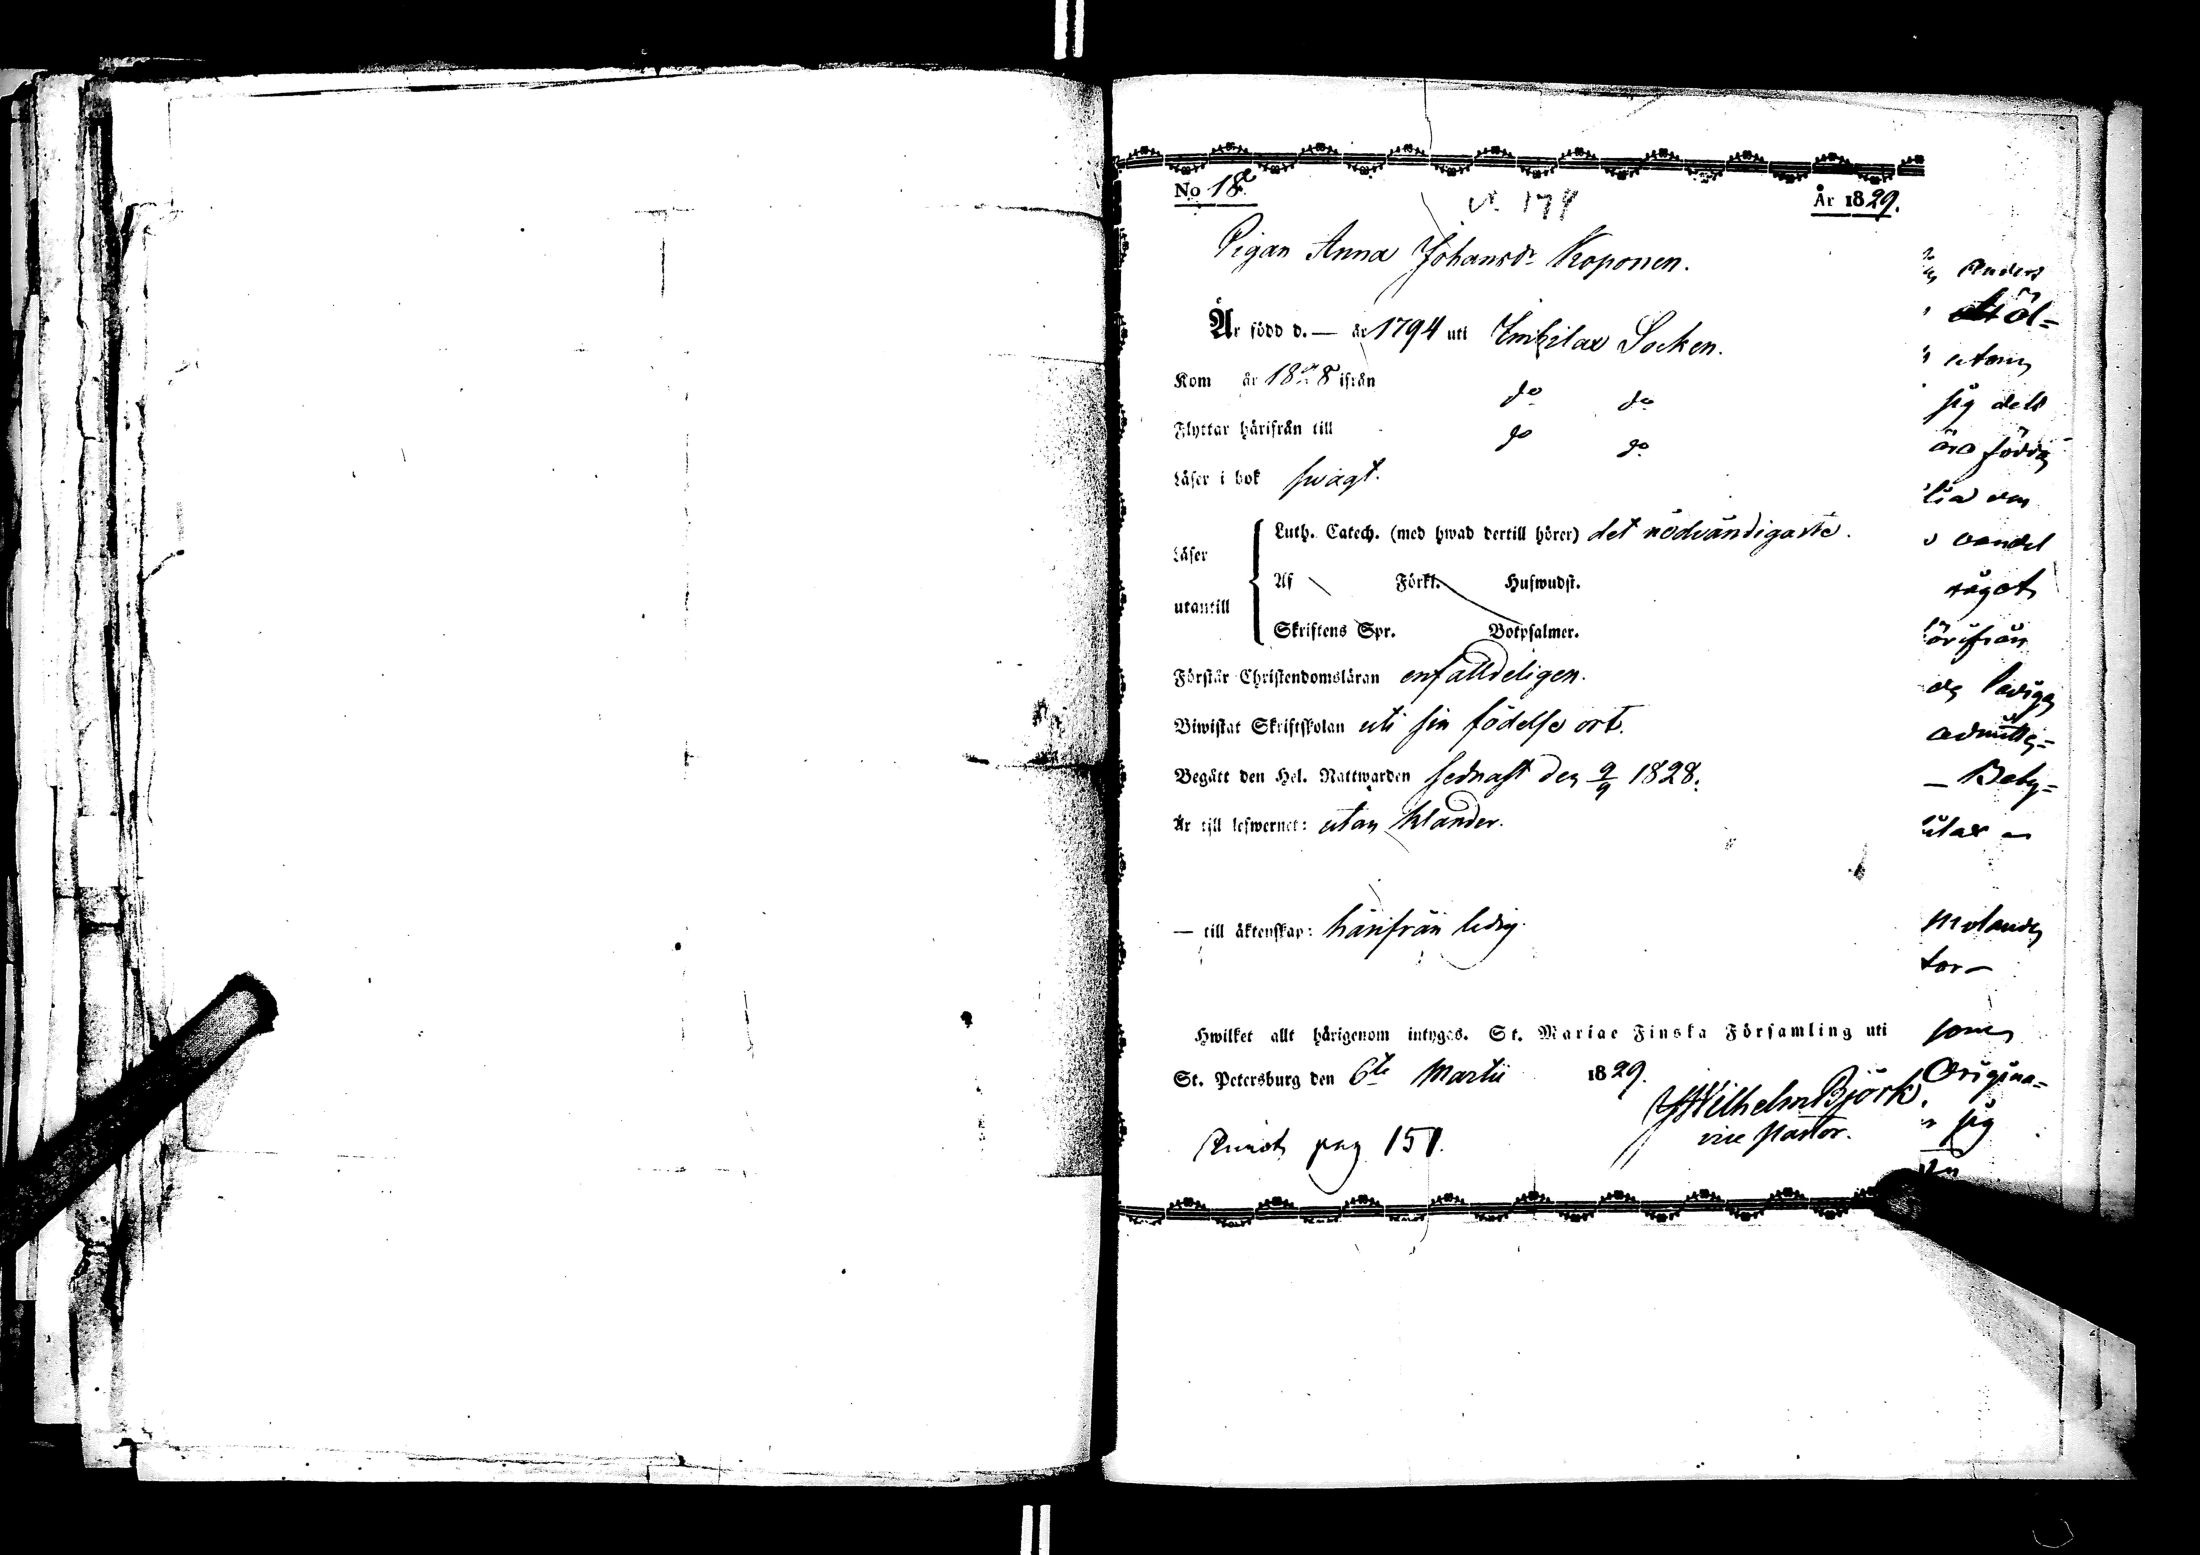 No 18.
174
År 1829.
Pigan Anna Johansdr Koponen.
Är född d. — år 1794 uti Imbilax Socken.
Kom år 1828 ifrån do do
Flyttar härifrån till do do
Läser i bok swagt.
Läser utantill
Luth. Catech. (med hwad dertill hörer) det nödvändigaste.
Af Förkl. Huswudst.
Skriftens Spr. Botpsalmer.
Förstår Christendomsläran enfalldeligen.
Biwistat Skriftskolan uti sin födelse ort.
Begått den Hel. Nattwarden sednast den 9/9 1828.
Är till lefwernet: utan klander.
— till äktenskap: härifrån ledig.
Hwilket allt härigenom intygas. St. Mariae Finska Församling uti
St. Petersburg den 6te Martii 1829.
Wilhelm Björk.
vice Pastor.
pag 151.
Anders
öl=
utom
sig
födda
vandel
något
härifrån
lediga
admitte=
— Beby=
Molander
tor—
som
Origina=
sig